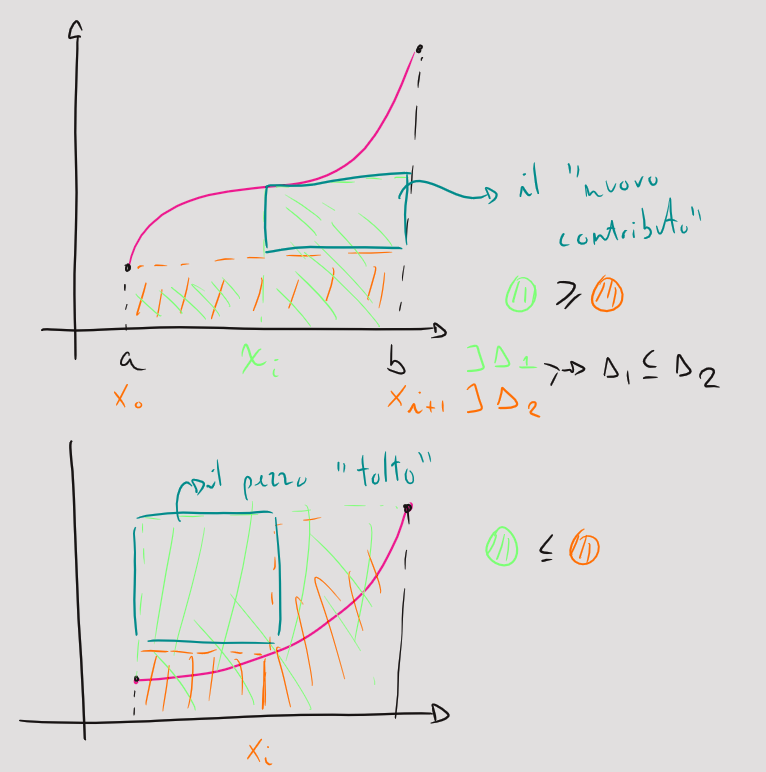 il "nuovo
contributo"
≥
a
x_i
b
x_0
x_{i+1}
] Δ_1
] Δ_2
→ Δ_1 ⊆ Δ_2
il pezzo "tolto"
≤
x_i